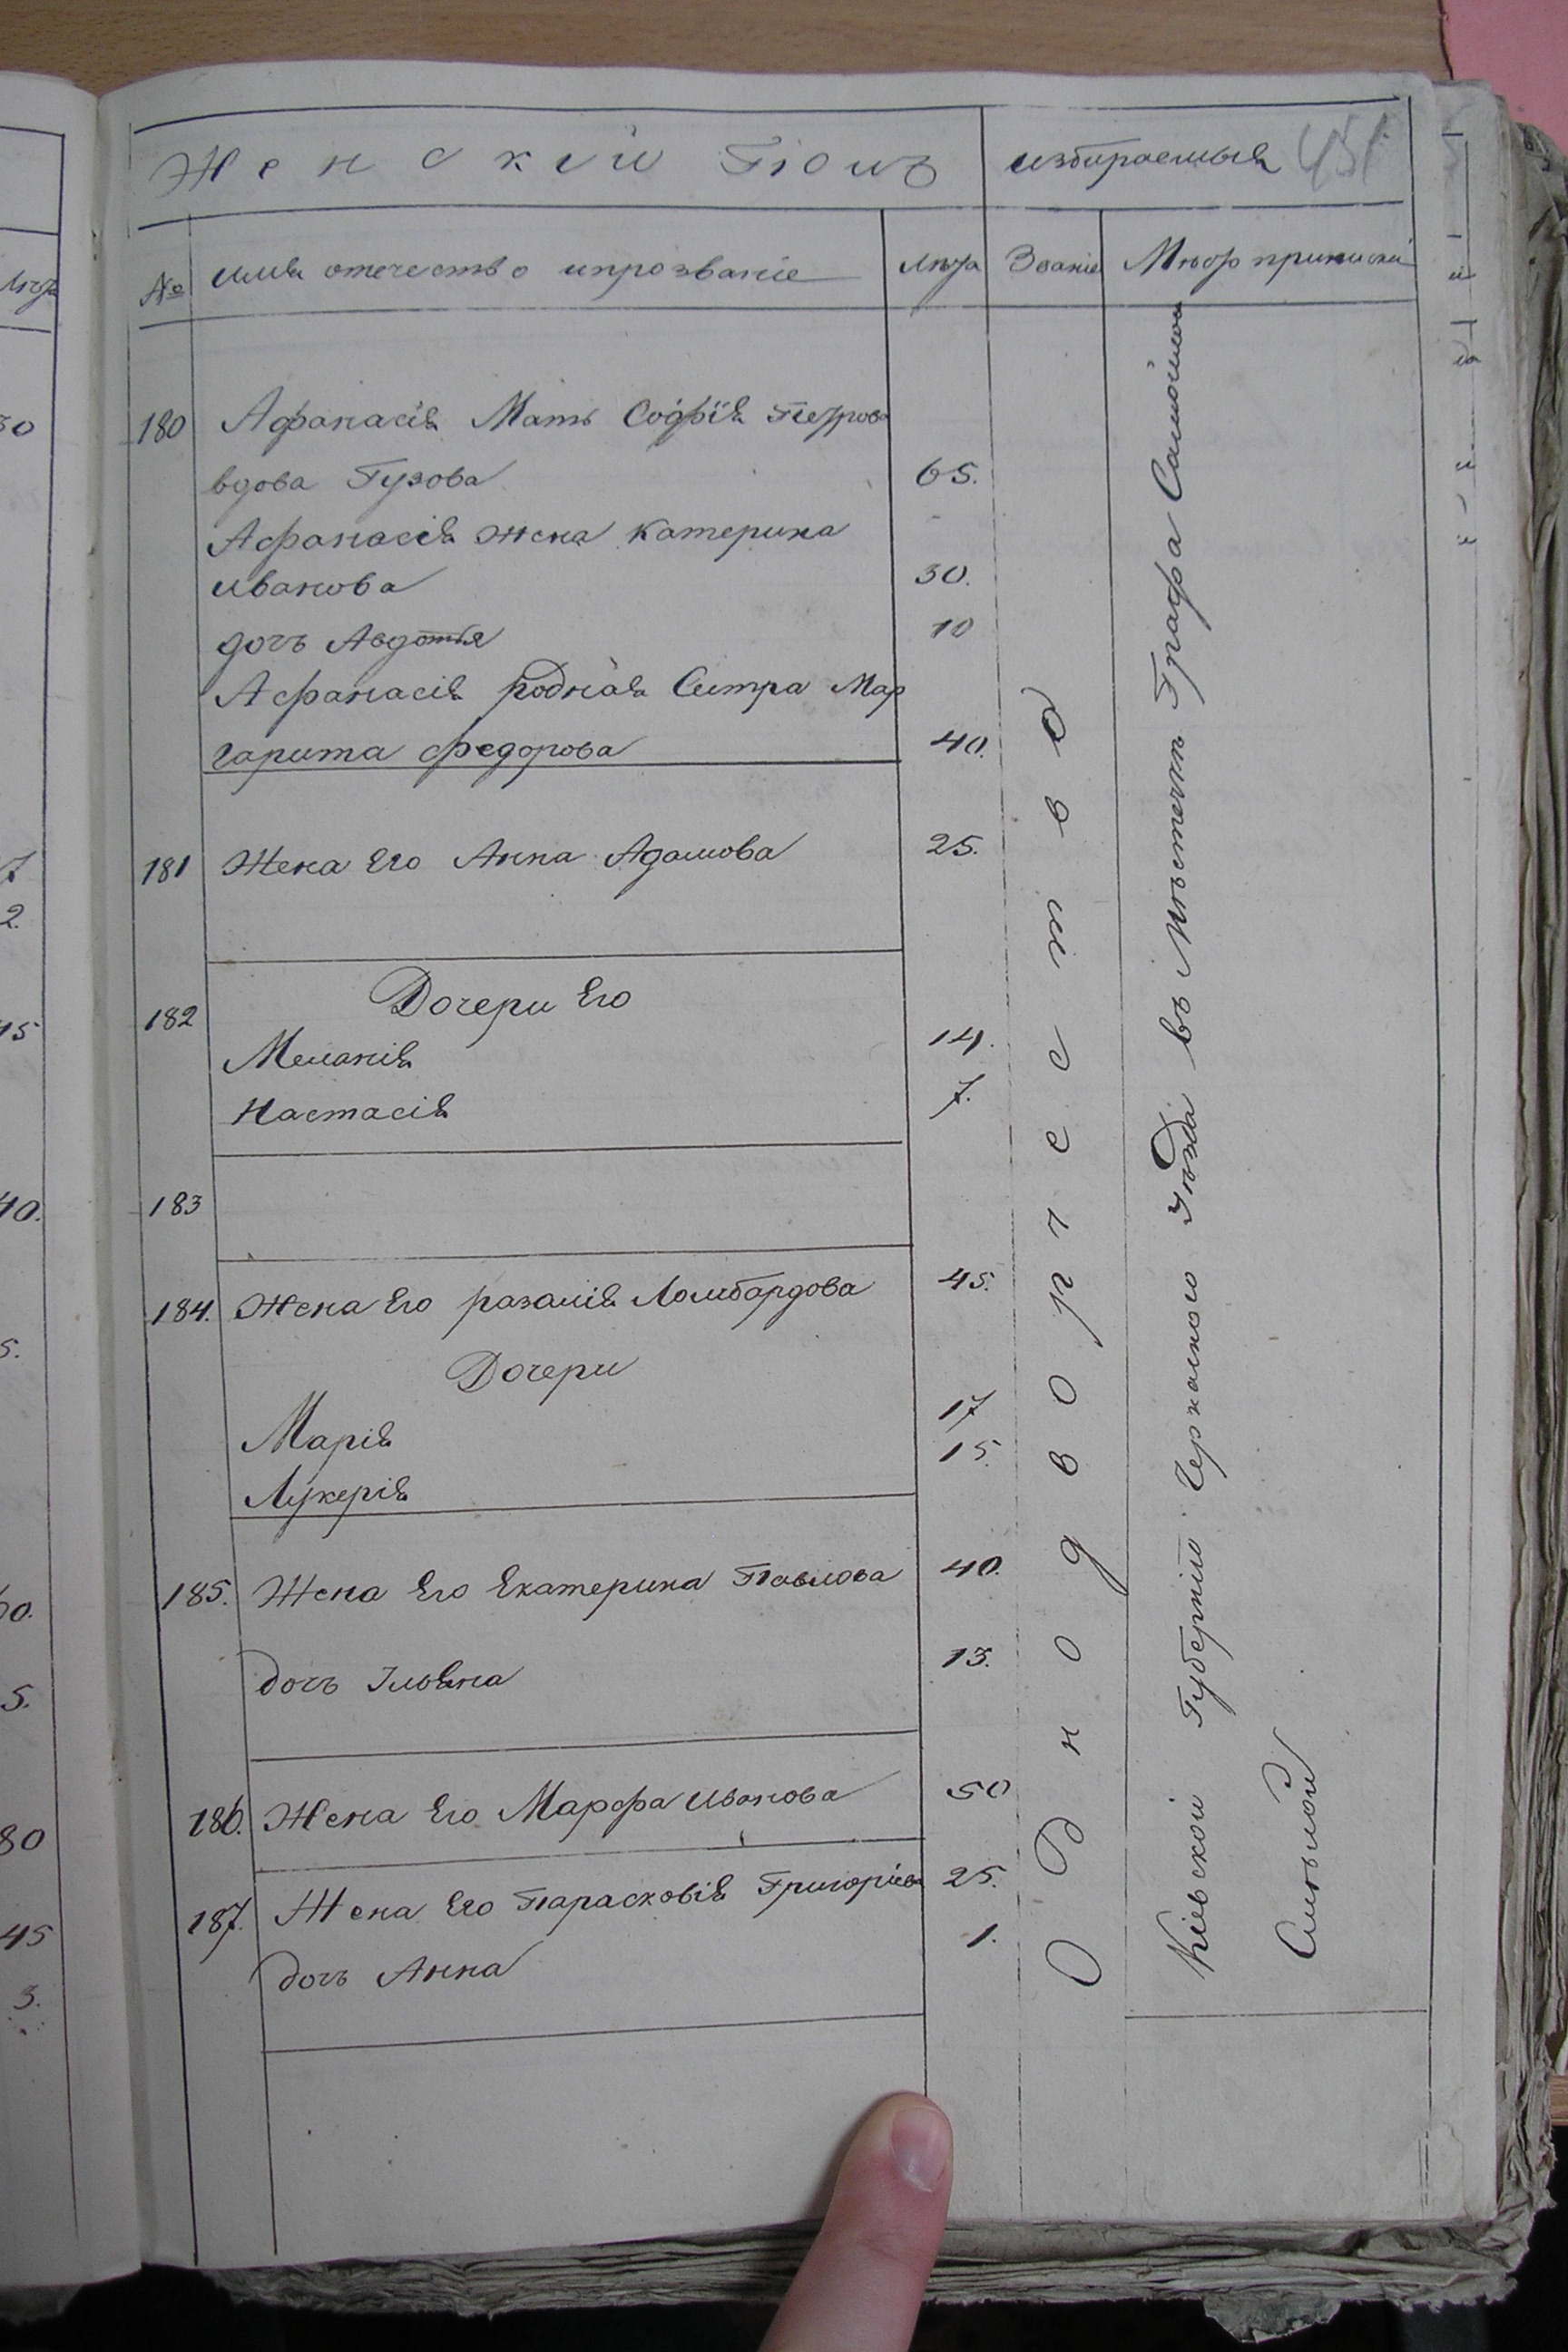 Женскій Полъ
избираемыя
451
№
имя отечество ипрозваніе
лѣта
Званіе
Мѣсто приписки
180
Афанасія Мать Софія Петрова
вдова Гузова
65.
Афанасія жена Катерина
Иванова
30.
дочь Авдотья
10
Афанасія родная Сестра Мар
гарита Федорова
40.
181
Жена Его Анна Адамова
25.
182
Дочери Его
Меланія
14.
Настасія
7.
183
184.
Жена Его розалія Ломбардова
45.
Дочери
Марія
17
Лукерія
15.
185.
Жена Его Екатерина Павлова
40.
дочь Ульяна
13.
186.
Жена Его Марфа Иванова
50
187.
Жена Его Парасковія Григоріева
25.
дочь Анна
1.
Однодворчество
Кіевской Губерніи Черкаского уезда въ Местечке Графа Самойлова
Смелой